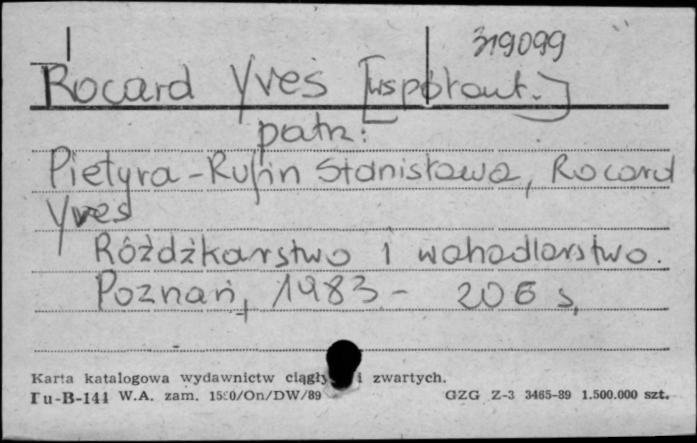 319099
Rocard Yves [współaut.]
patrz:
Pietyra-Rufin Stanisława, Rocard
Yves
Różdżkarstwo i wahadlarstwo.
Poznań, 1983 - 206 s,
Karta katalogowa wydawnictw i zwartych.
Pu-B-144 W.A. zam. 1580/On/DW/89 GZG Z-3 3465-89 1.500.000 szt.